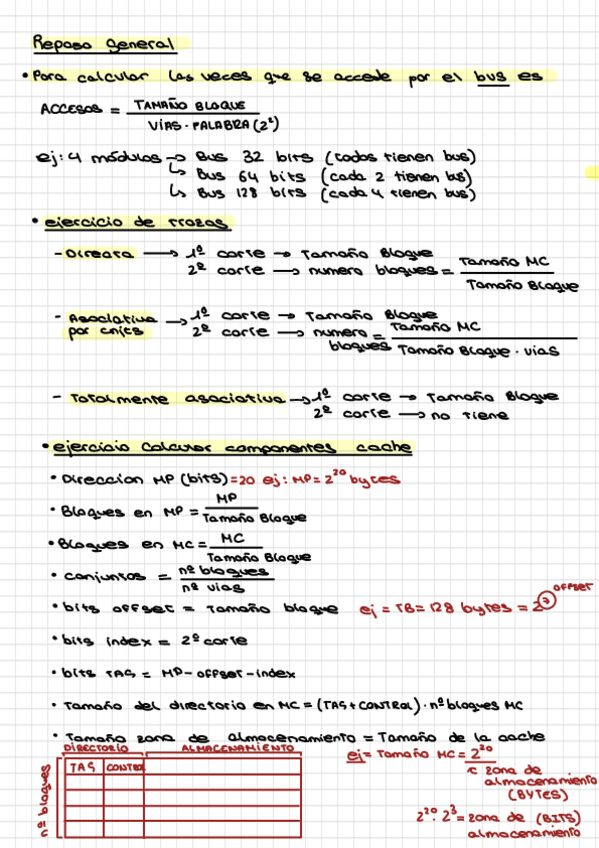 Repaso general
• Para calcular las veces que se accede por el bus es
ACCESOS = TAMAÑO BLOQUE / VÍAS · PALABRA (2²)
ej: 4 módulos → Bus 32 bits (todos tienen bus)
↳ Bus 64 bits (cada 2 tienen bus)
↳ Bus 128 bits (cada 4 tienen bus)
• ejercicio de trazas
- Directa → 1º corte → Tamaño Bloque
2º corte → numero bloques = Tamaño MC / Tamaño Bloque
- Asociativa por cnjts → 1º corte → Tamaño Bloque
2º corte → numero bloques = Tamaño MC / Tamaño Bloque · vias
- Totalmente asociativa → 1º corte → Tamaño Bloque
2º corte → no tiene
• ejercicio calcular componentes cache
• Direccion MP (bits) = 20 ej: MP = 2²⁰ bytes
• Bloques en MP = MP / Tamaño Bloque
• Bloques en MC = MC / Tamaño Bloque
• conjuntos = nº bloques / nº vias
• bits offset = Tamaño bloque ej = TB = 128 bytes = 2⁷ OFFSET
• bits index = 2º corte
• bits TAG = MP - offset - index
• Tamaño del directorio en MC = (TAG + CONTROL) · nº bloques MC
• Tamaño zona de almacenamiento = Tamaño de la cache
DIRECTORIO ALMACENAMIENTO
TAG CONTROL
nº bloques
ej = Tamaño MC = 2²⁰
zona de
almacenamiento
(BYTES)
2²⁰ · 2³ = zona de (BITS)
almacenamiento